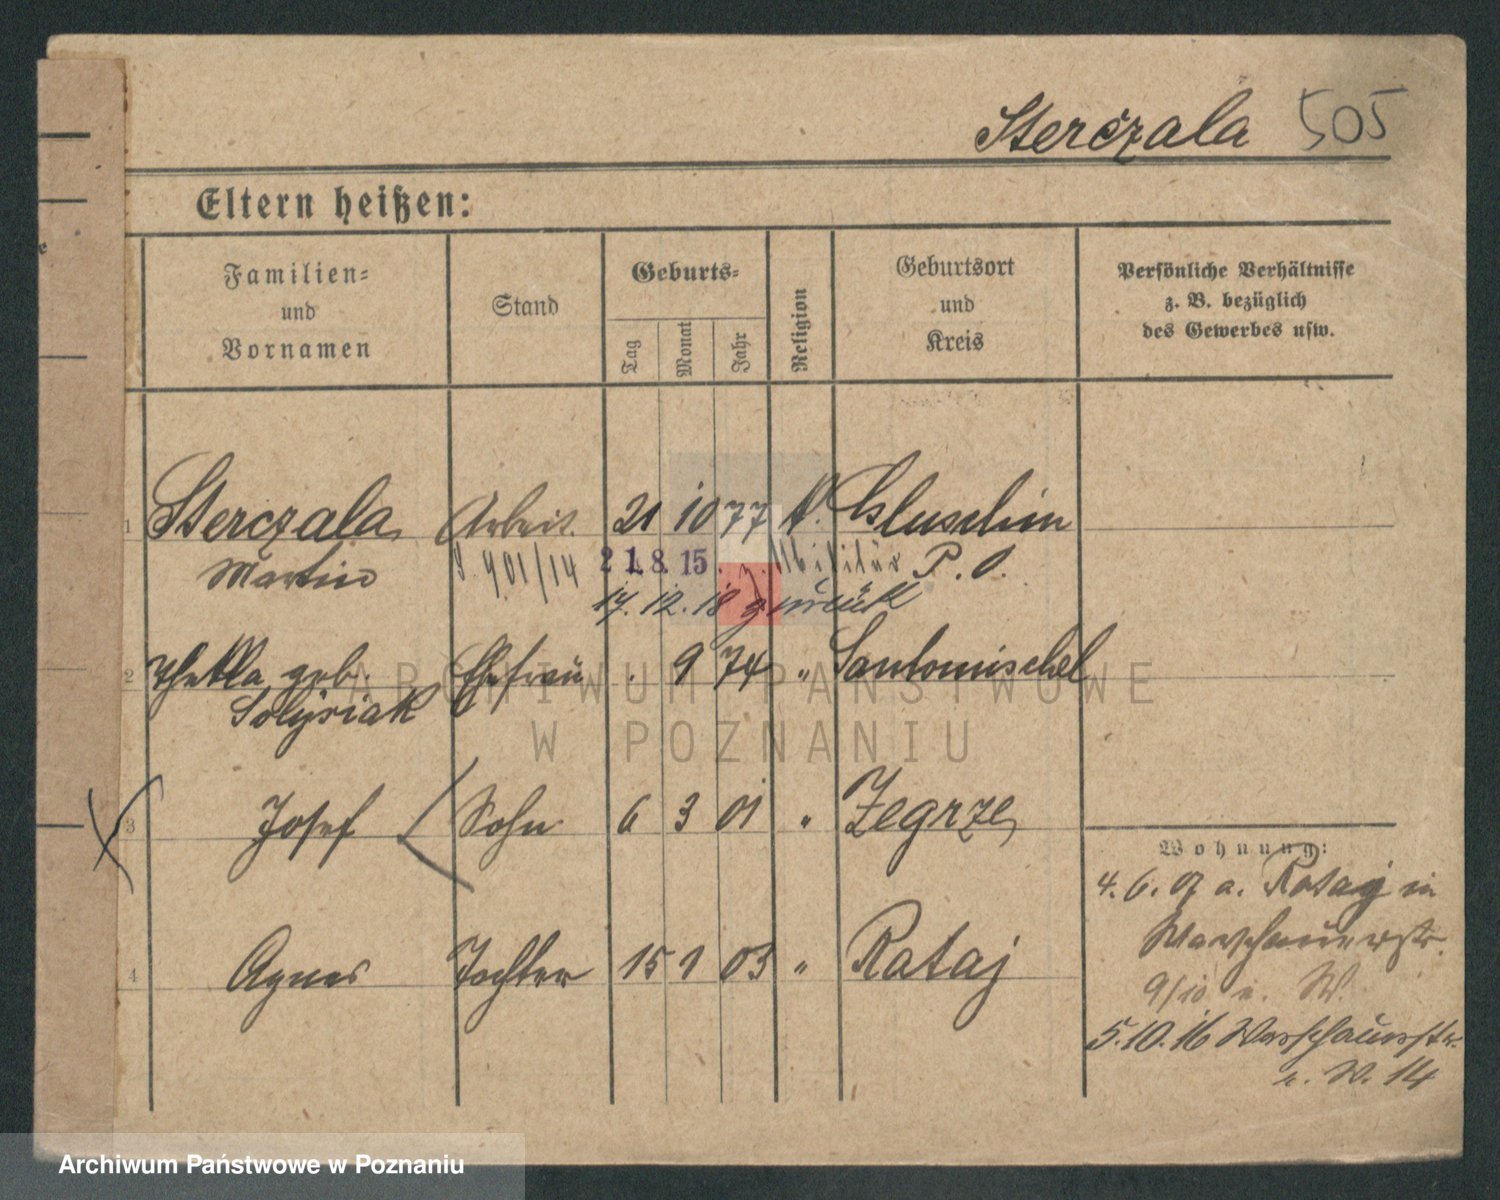 Sterczala 505
Eltern heißen:
Familien-
und
Vornamen
Stand
Geburts-
Tag
Monat
Jahr
Religion
Geburtsort
und
Kreis
Persönliche Verhältnisse
z. B. bezüglich
des Gewerbes usw.
1 Sterczala Arbeit. 21 10 77 k. Gluschin
Martin J. 901/14 21. 8. 15. z. Militär P. O.
17. 12. 18 zurück
2 Thekla geb. Ehefrau . 9 74 " Santomischel
Solysiak
3 Josef Sohn 6 3 01 " Zegrze
Wohnung:
4. 6. 07 a. Rataj in
Warschauerstr.
4 Agnes Tochter 15 1 03 " Rataj
9/10 n. W.
5.10.16 Warschauerstr.
n. W. 14
ARCHIWUM PAŃSTWOWE
W POZNANIU
Archiwum Państwowe w Poznaniu